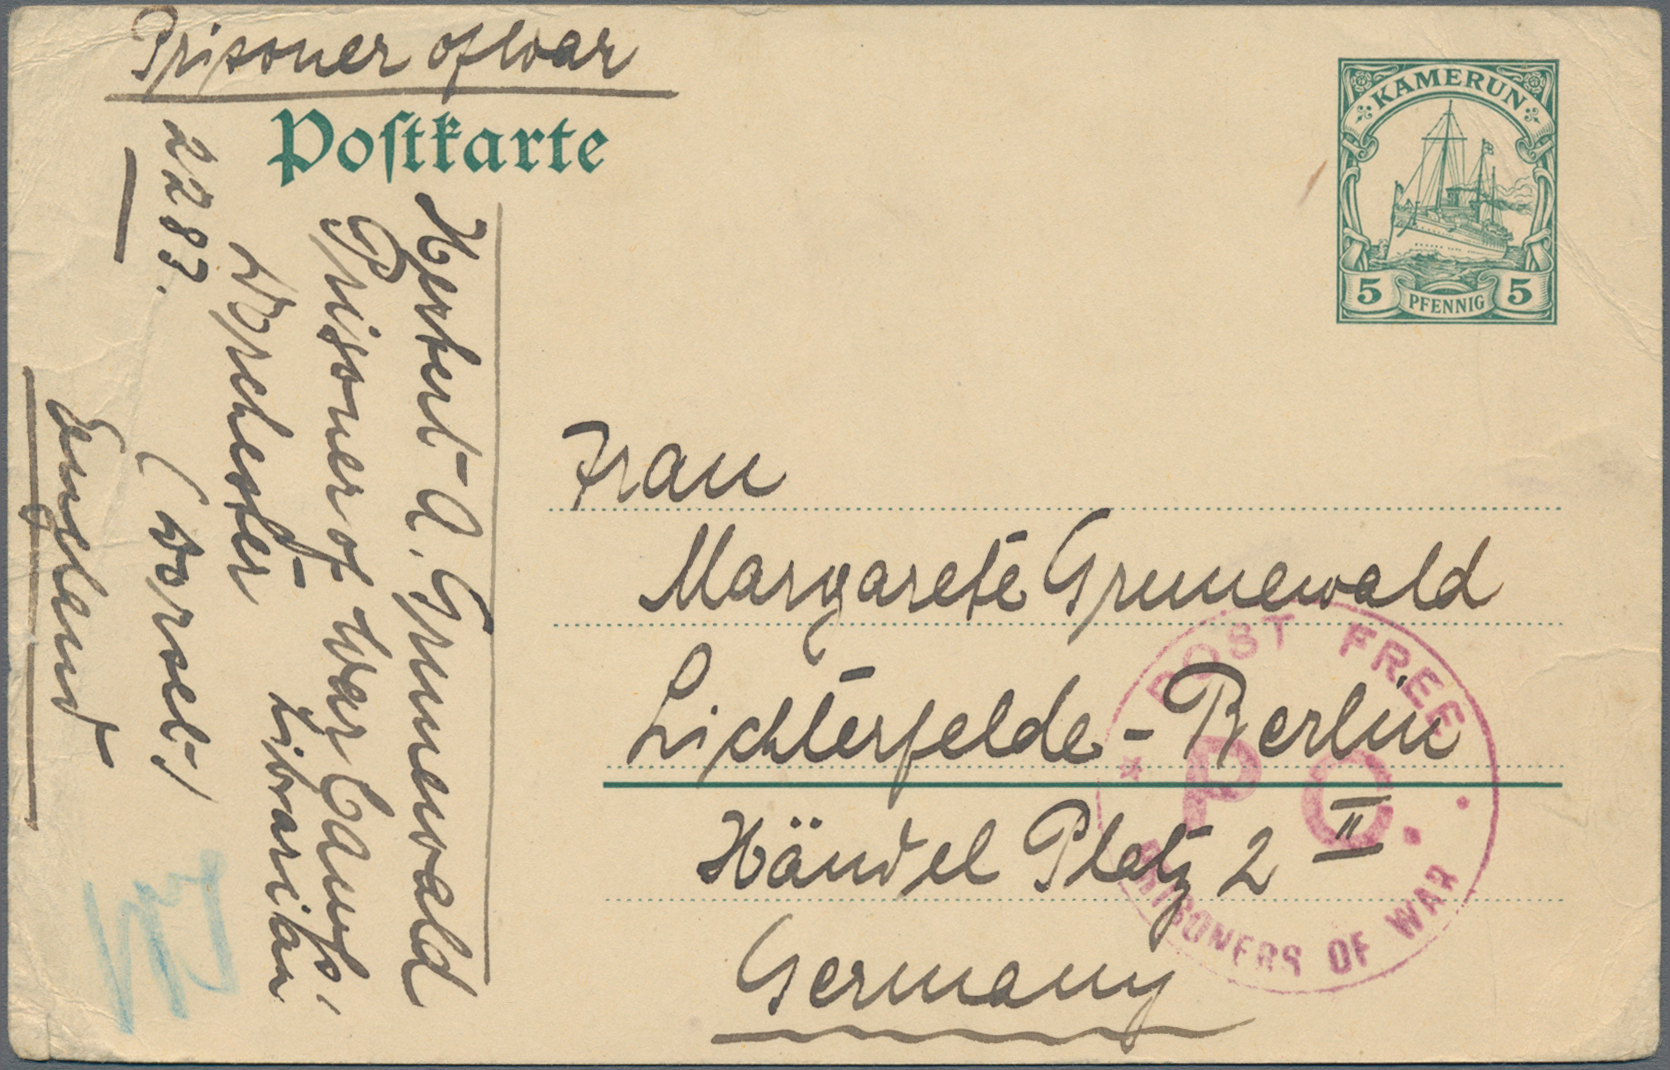 Prisoner of War
Postkarte
KAMERUN
5 PFENNIG 5
Herbert A. Grunewald
Prisoner of War Camp,
Librarian
Dorchester
2283.
(Dorset)
England
Frau
Margarete Grunewald
Lichterfelde-Berlin
Händel Platz 2 II
Germany
POST FREE
P.C.
PRISONERS OF WAR